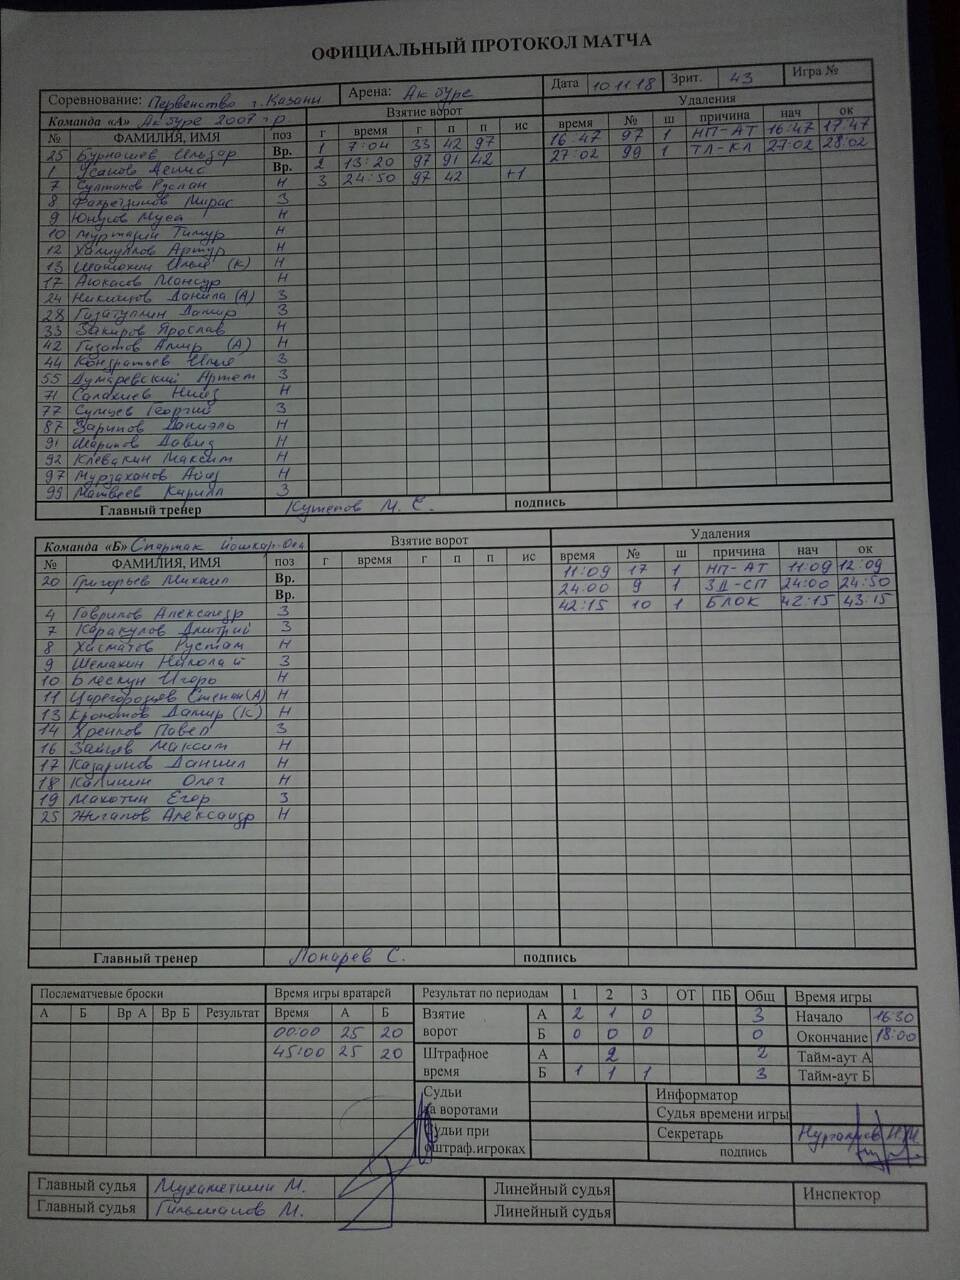 ОФИЦИАЛЬНЫЙ ПРОТОКОЛ МАТЧА
Соревнование: Первенство г. Казани Арена: Ак буре Дата 10.11.18 Зрит. 43 Игра №
Команда «А» Ак буре 2007 г.р Взятие ворот Удаления
№ ФАМИЛИЯ, ИМЯ поз г время г п п ис время № ш причина нач ок
25 Бурнашев Ильдар Вр. 1 7:04 33 42 97 16:47 97 1 НП-АТ 16:47 17:47
1 Усанов Денис Вр. 2 13:20 97 91 42 27:02 99 1 ТЛ-КЛ 27:02 28:02
7 Султанов Руслан Н 3 24:50 97 42 +1
8 Фахретдинов Мирас З
9 Юнусов Муса Н
10 Муртазин Тимур Н
12 Халиуллов Артур Н
13 Шатохин Илья (К) Н
17 Аюкасов Мансур Н
24 Никишов Данила (А) З
28 Гизатуллин Дамир З
33 Закиров Ярослав Н
42 Гизатов Амир (А) Н
44 Кондратьев Илья З
55 Думаревский Артем З
71 Салахиев Нияз Н
77 Сумцев Георгий З
87 Зарипов Даниэль Н
91 Шарипов Давид Н
92 Клевакин Максим Н
97 Мурзаханов Аяз Н
99 Матвеев Кирилл З
Главный тренер Кутепов М. Е. подпись
Команда «Б» Спартак Йошкар-Ола Взятие ворот Удаления
№ ФАМИЛИЯ, ИМЯ поз г время г п п ис время № ш причина нач ок
20 Григорьев Михаил Вр. 11:09 17 1 НП-АТ 11:09 12:09
Вр. 24:00 9 1 ЗД-СП 24:00 24:50
4 Гаврилов Александр З 42:15 10 1 БЛОК 42:15 43:15
7 Каракулов Дмитрий З
8 Хисматов Рустам Н
9 Шемахин Николай З
10 Блескун Игорь Н
11 Царегородцев Степан (А) Н
13 Кропотов Дамир (К) Н
14 Хренков Павел З
16 Зайцев Максим Н
17 Казаринов Даниил Н
18 Калинин Олег Н
19 Махотин Егор З
25 Жигалов Александр Н
Главный тренер Лопарев С. подпись
Послематчевые броски Время игры вратарей Результат по периодам 1 2 3 ОТ ПБ Общ Время игры
А Б Вр А Вр Б Результат Время А Б Взятие ворот А 2 1 0 3 Начало 16:30
00:00 25 20 Б 0 0 0 0 Окончание 18:00
45:00 25 20 Штрафное время А 2 2 Тайм-аут А
Б 1 1 1 3 Тайм-аут Б
Судьи за воротами Информатор
Судья времени игры
Судьи при оштраф.игроках Секретарь
подпись
Главный судья Мухаметшин М. Линейный судья Инспектор
Главный судья Гильманов М. Линейный судья